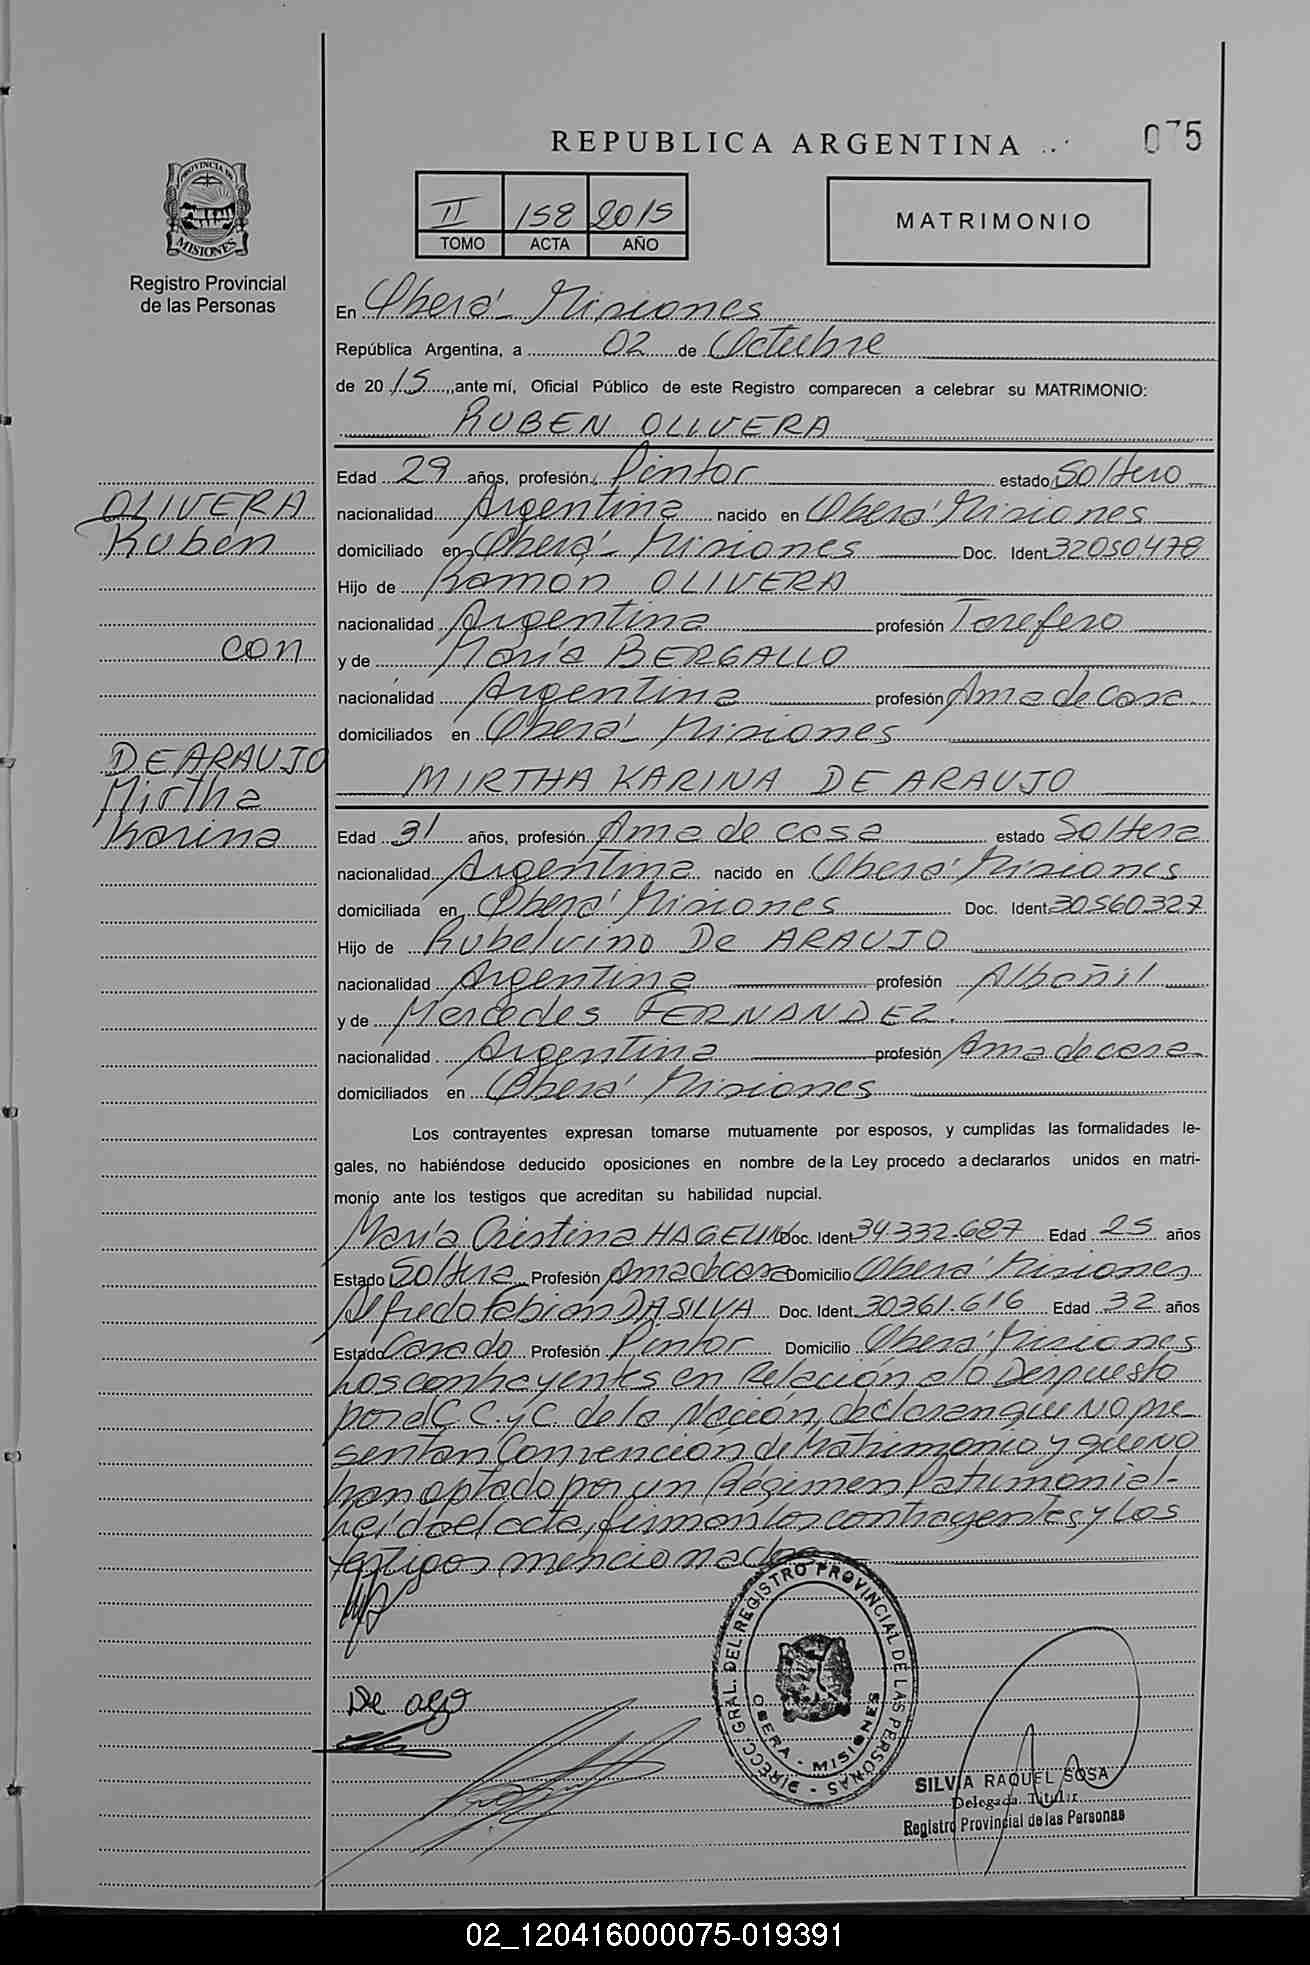 REPUBLICA ARGENTINA
075
PROVINCIA DE
MISIONES
Registro Provincial
de las Personas
II 158 2015
TOMO ACTA AÑO
MATRIMONIO
En Oberá - Misiones
República Argentina, a 02 de Octubre
de 2015, ante mí, Oficial Público de este Registro comparecen a celebrar su MATRIMONIO:
RUBEN OLIVERA
OLIVERA
Ruben
con
DE ARAUJO
Mirtha
Karina
Edad 29 años, profesión Pintor estado Soltero
nacionalidad Argentina nacido en Oberá Misiones
domiciliado en Oberá - Misiones Doc. Ident 32050.478
Hijo de Ramón OLIVERA
nacionalidad Argentina profesión Tarefero
y de María BERGALLO
nacionalidad Argentina profesión Ama de casa.
domiciliados en Oberá - Misiones
MIRTHA KARINA DE ARAUJO
Edad 31 años, profesión Ama de casa estado Soltera
nacionalidad Argentina nacido en Oberá Misiones
domiciliada en Oberá Misiones Doc. Ident 30560.327
Hijo de Rubelvino De ARAUJO
nacionalidad Argentina profesión Albañil
y de Mercedes FERNANDEZ.
nacionalidad Argentina profesión Ama de casa
domiciliados en Oberá Misiones
Los contrayentes expresan tomarse mutuamente por esposos, y cumplidas las formalidades le-
gales, no habiéndose deducido oposiciones en nombre de la Ley procedo a declararlos unidos en matri-
monio ante los testigos que acreditan su habilidad nupcial.
María Cristina HAGELIN Doc. Ident 34.332.687 Edad 25 años
Estado Soltera Profesión Ama de casa Domicilio Oberá Misiones
Alfredo Fabian DA SILVA Doc. Ident. 30361.616 Edad 32 años
Estado Casado Profesión Pintor Domicilio Oberá Misiones
Los contrayentes en Relación a lo Despuesto
por el C. C. y C. de la Nación, declaran que NO pre-
sentan Convención de Matrimonio y que NO
han optado por un Régimen Patrimonial-
Leída el acta, firman los contrayentes y los
testigos mencionados
DIRECC. GRAL. DEL REGISTRO PROVINCIAL DE LAS PERSONAS -
OBERA - MISIONES
SILVIA RAQUEL SOSA
Delegada Titular
Registro Provincial de las Personas
02_120416000075-019391